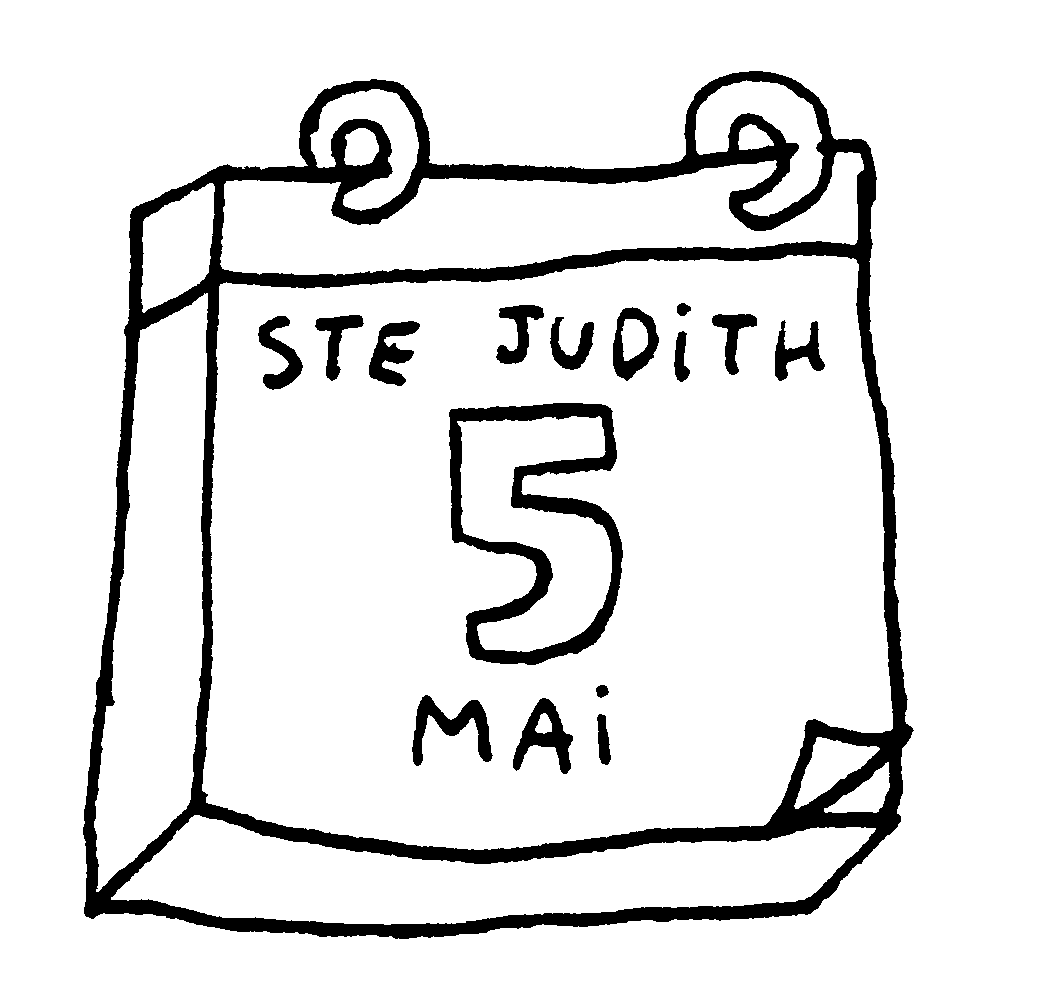 STE JUDiTH
5
MAi